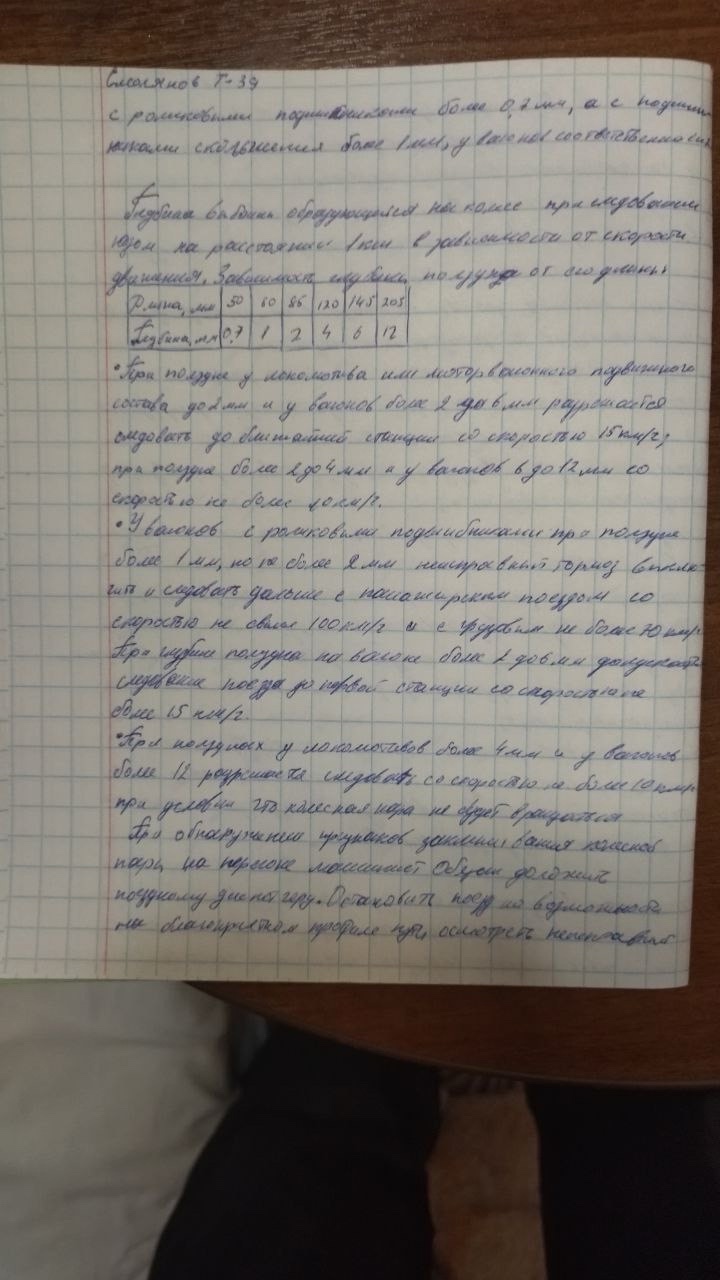 Смолянов Т-39
с роликовыми подшипниками более 0,7 мм, а с подшип
никами скольжения более 1 мм, у вагонов соответственно
Глубина выбоины образующейся на колесе при следовании
юзом на расстоянии 1 км в зависимости от скорости
движения. Зависимость глубины ползуна от его длины:
Длина, мм 50 60 85 120 145 205
Глубина, мм 0,7 1 2 4 6 12
• При ползуне у локомотива или моторвагонного подвижного
состава до 2 мм и у вагонов более 2 до 6 мм разрешается
следовать до ближайшей станции со скоростью 15 км/г,
при ползуне более 2 до 4 мм и у вагонов 6 до 12 мм со
скоростью не более 10 км/г.
• У вагонов с роликовыми подшибниками при ползуне
более 1 мм, но не более 2 мм неисправный тормоз выклю-
чить и следовать дальше с пассажирским поездом со
скоростью не свыше 100 км/г и с грузовым не более 70 км/г
При глубине ползуна на вагоне более 2 до 6 мм
следование поезда до первой станции со скоростью не
более 15 км/г.
• При ползунах у локомотивов более 4 мм и у вагонов
более 12 разрешается следовать со скоростью не более 10 км/г
при условии что колесная пара не будет вращаться
При обнаружении признаков заклинивания колесной
пары на перегоне машинист обязан доложить
поездному диспетчеру. Остановить поезд по возможности
на благоприятном профиле пути, осмотреть